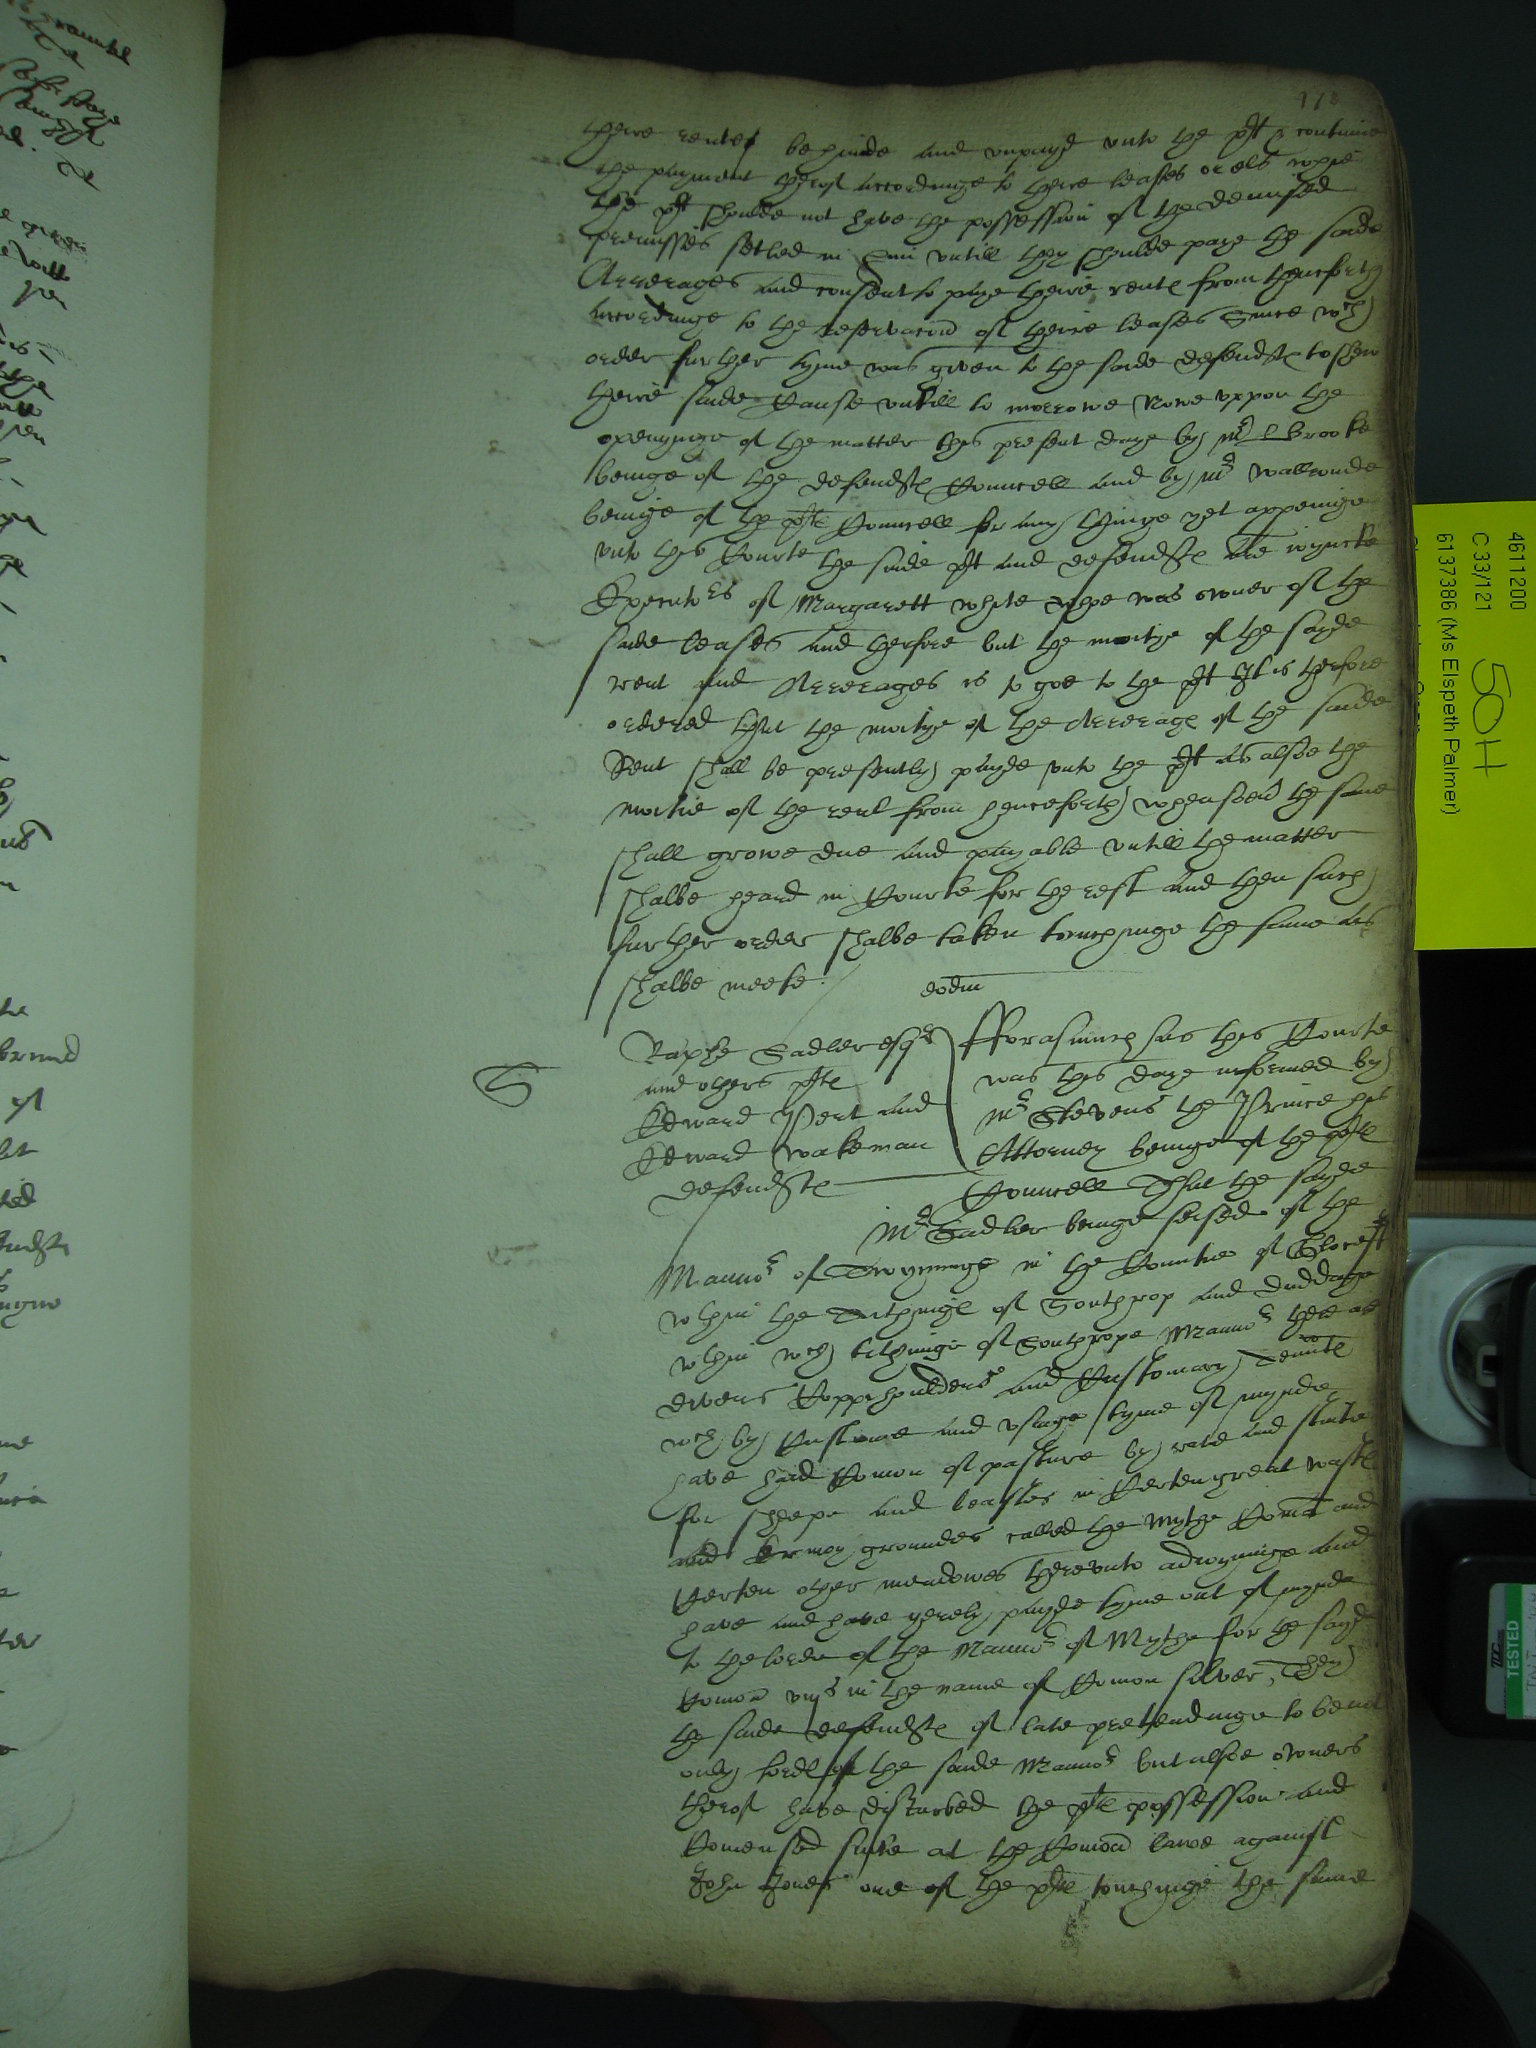 178
theire rentes behinde and unpayd unto the plt & contynue
the payment therof accordinge to theire leases or els whye
the plt shoulde not have the possession of the demised
premisses setled in him untill they shoulde paye the saide
Arrerages and consent to paye theire rente from thenceforth
accordinge to the reservacion of theire leases Since wch
order further tyme was given to the saide defendtes to shew
theire saide Cause untill to morrowe Nowe uppon the
openynge of the matter this present daye by Mr Brooke
beinge of the defendtes Councell and by Mr Walronde
beinge of the plts Councell for any thinge yet apperinge
unto this Courte the saide plt and defendtes are ioyncte
Executors of Margarett White whoe was owner of the
saide leases and therfore but the moitye of the sayde
rent and Arrerages is to goe to the plt It is therfore
ordered that the moitye of the Arrerages of the saide
Rent shall be presently payde unto the plt as alsoe the
moitie of the rent from henceforth whensoevr the same
shall growe due and payable untill the matter
shalbe heard in Courte for the rest and then such
further order shalbe taken touchinge the same as
shalbe meete.
eodm
S
Raphe Sadler esqr
and others plts
Edward Pert and
Edward Wakeman
defendtes
Fforasmuch as this Courte
was this daye informed by
Mr Stevens the Prince his
Attorney beinge of the plts
Councell That the sayde
Mr Sadler beinge seised of the
Mannor of Twyninge in the Countie of Glocestr
wthin the Tithinge of Southrop and
wthin wch tithinge of Southrope Mannor there are
divers Coppihoulders and Customary Tennts
wch by Custome and usage tyme of mynde
have had Comon of pasture by rate and stinte
for sheepe and beastes in Certen great wastes
and Comon groundes called the Mythe Comon and
Certen other meadowes thereunto adioyninge and
have and have yerely payde tyme out of mynde
to the lorde of the Mannor of Mythe for the sayd
Comon in the name of Comon silver, They
the saide defendtes of late pretendinge to be not
only lordes of the saide Mannor but alsoe owners
therof have disturbed the plts possession and
Comensed suite at the Comon lawe against
John Jones one of the plts touchinge the same
4611200
C 33/121
50H
6137386 (Ms Elspeth Palmer)
TESTED